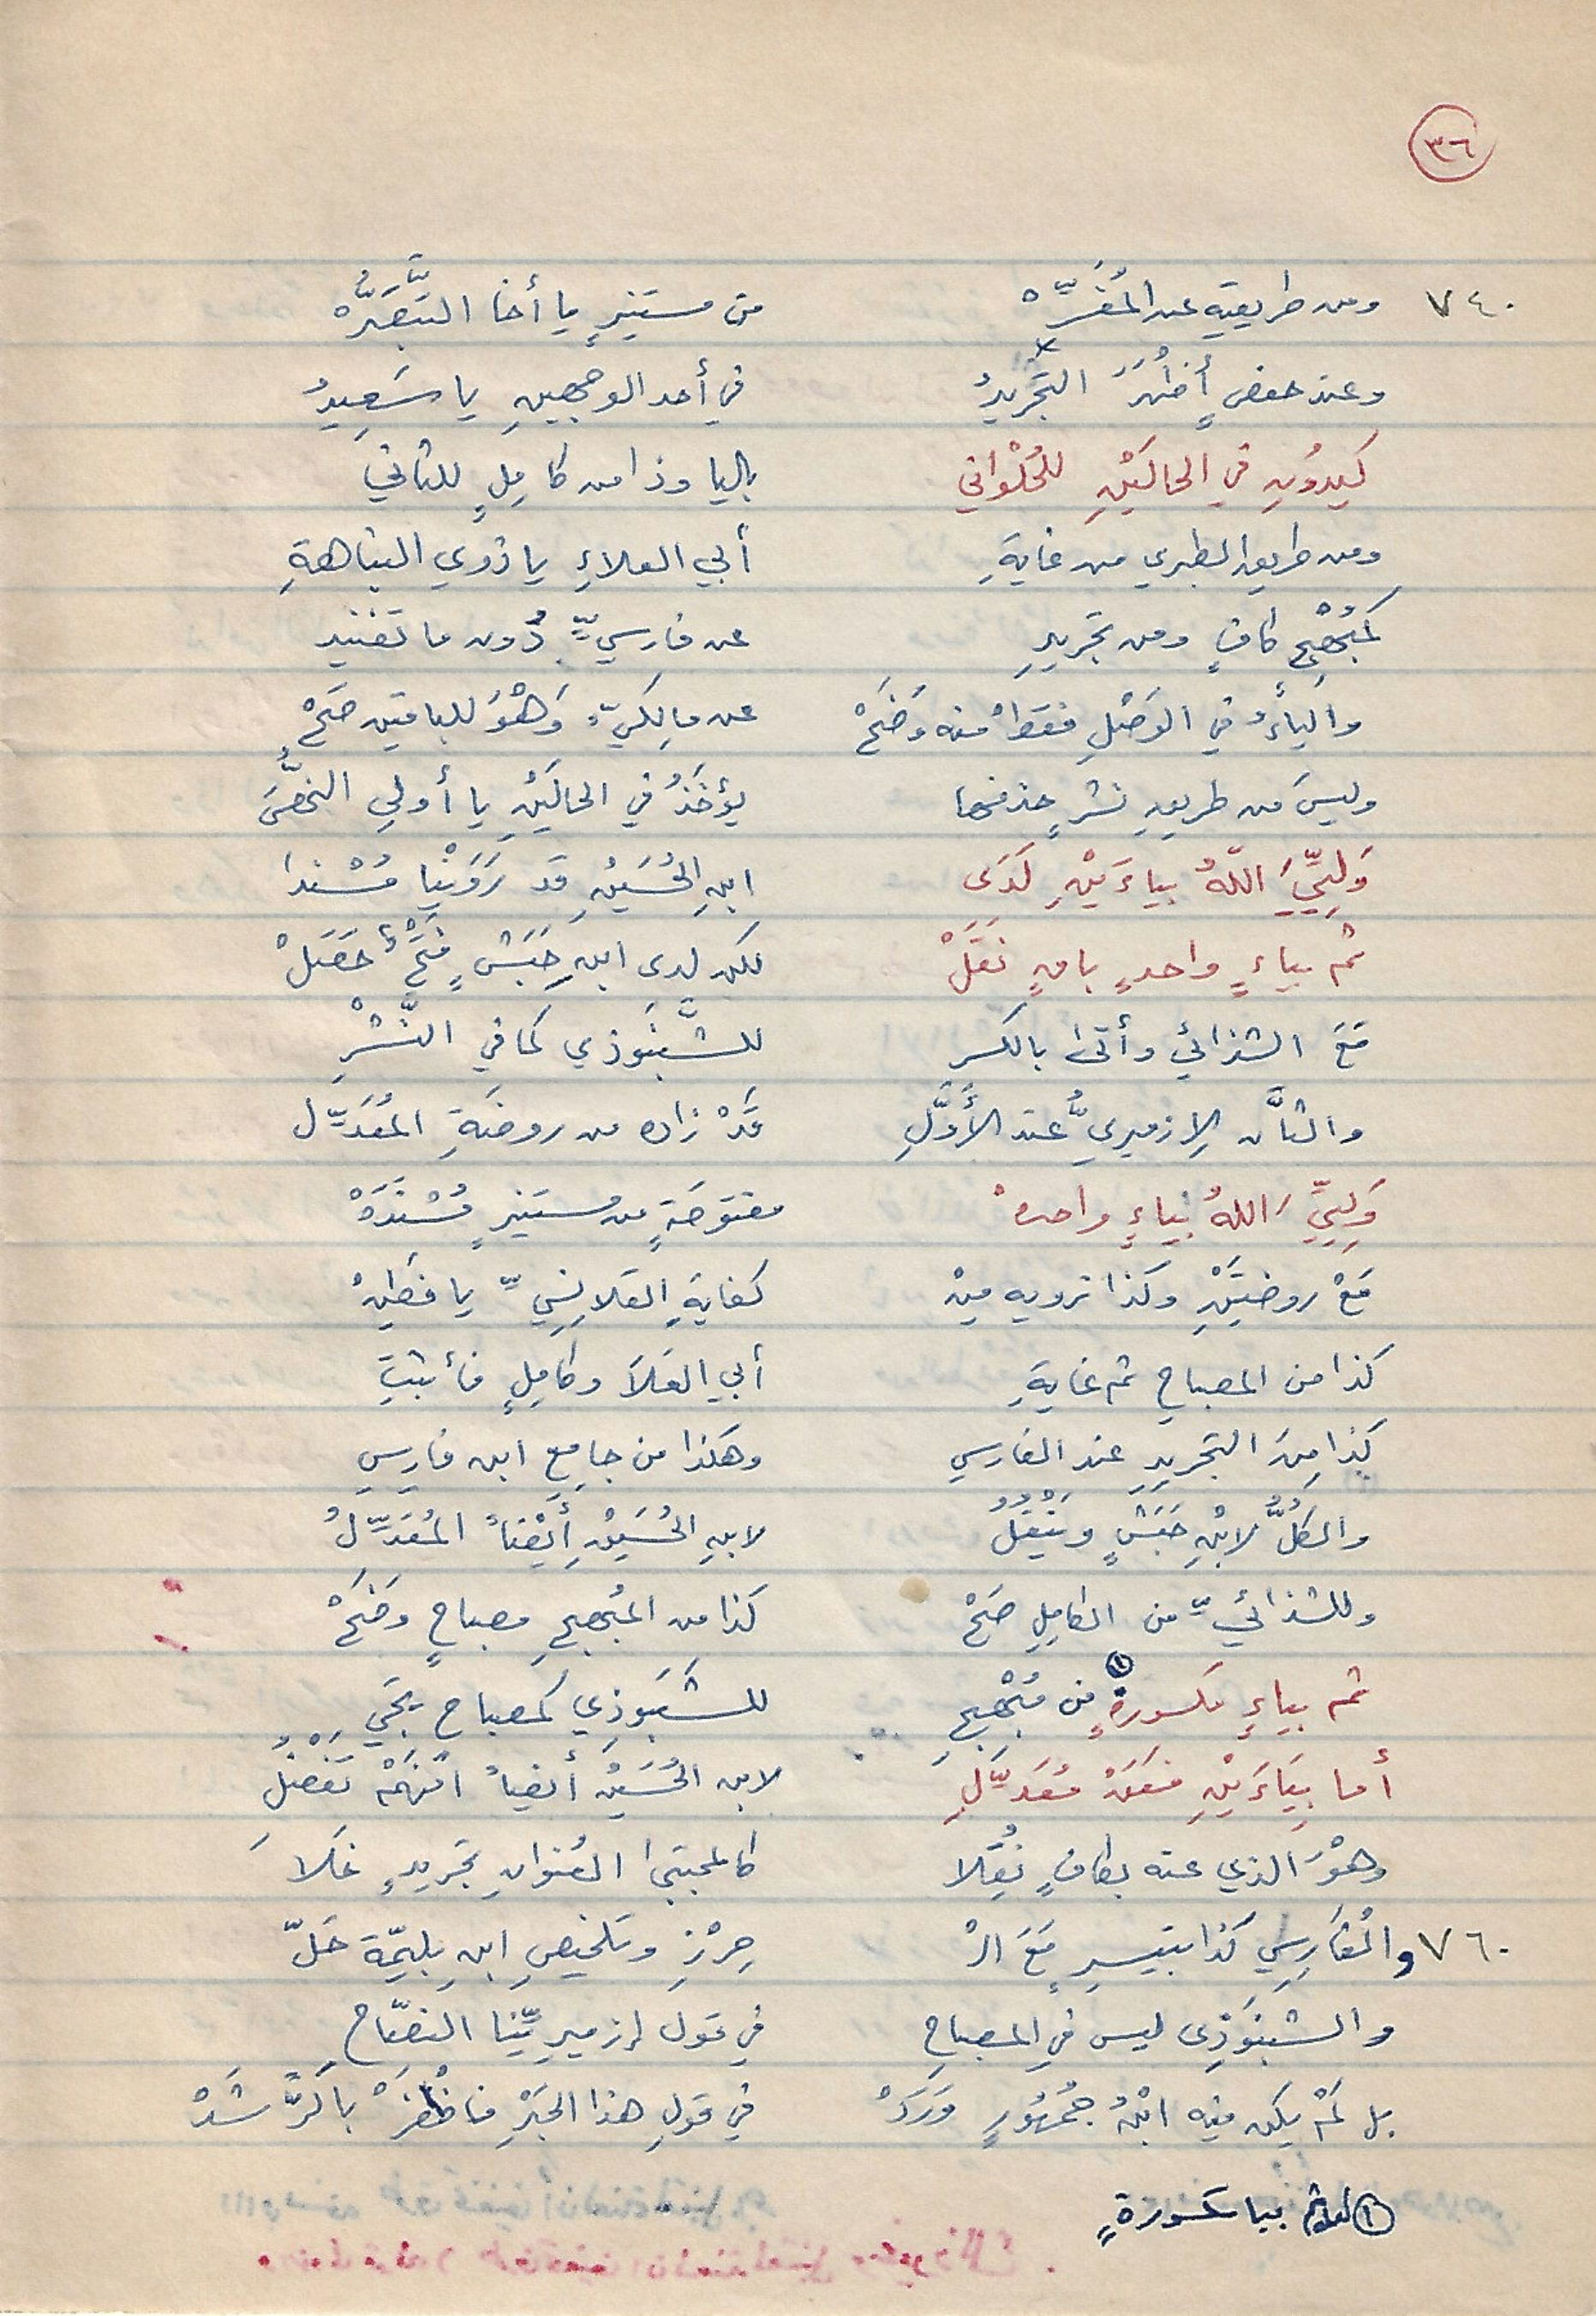 ٣٦
٧٤٠ ومن طريقيه عن المُفَسِّره من مستنيرٍ يا أخا التَّبَصُّره
وعند حفصٍ أظهَرَ التجريدُ في أحد الوجهينِ يا سَعِيدُ
كيدونِ في الحالَيْنِ للحُلْواني باليا وذا من كامِلٍ للثاني
ومن طريق الطبري من غايةِ أبي العلاءِ يا ذوي النباهةِ
كمُبْهِجٍ كافٍ ومن تجريدِ عن فارسيٍّ دُون ما تفنيد
والياءُ في الوَصْلِ فقطْ منه وَضَحْ عن مالِكيٍّ وَهْوَ للباقين صَحْ
وليسَ من طريقِ نشرٍ حذفها يؤخَذُ في الحالَيْنِ يا أولي
وَلِيِّيَ اللهُ بياءَيْنِ لَدَى ابنِ الحُسَيْنِ قد رَوَيْنا مُسْندا
ثم بياءٍ واحدٍ باقٍ نَقَلْ لكن لدى ابنِ حَبَشٍ فَتْحٌ حَصَلْ
مَعَ الشذائي وأتى بالكسر للشَّنَبوذي كما في النَّشْرِ
والثانِ الازميريُّ عند الأوَّلِ قَدْ زاده من روضةِ المُعَدِّل
وَلِيِّ اللهُ بياءٍ واحده مفتوحَةٍ من مستنيرٍ مُسْنَدَهْ
مَعْ روضتَيْنِ وكذا نرويه مِنْ كفايةِ القلانِسِيِّ يا فَطِنْ
كذا من المصباحِ ثم غايةِ أبي العَلاَ وكامِلٍ فأثبتِ
كذا مِنَ التجريدِ عند الفارسي وهكذا من جامِعِ ابن فارِسِ
والكُلُّ لابْنِ حَبَشٍ وَيَنْقُلُ لابنِ الحُسَيْنِ أَيْضاً المُعَدِّلُ
وللشذائيِّ من الكامِلِ صَحْ كذا من المُبْهِجِ مصباحٍ وضَحْ
ثم بياءٍ مكسورةٍ (١) من مُبْهِجِ للشَّنَبوذِي كمصباح يَجِي
أما بِيَاءَيْنِ فعَنْ مُعَدِّلِ لابن الحُسَيْنِ أيضاً افْهَمْ تَفْضُلِ
وهْوَ الذي عنه بكافٍ نُقِلا كالمجتبى العُنْوانِ تجريدٍ غَلاَ
٧٦٠ والْفَارِسِي كذا بتيسيرٍ مَعَ الْ حِرْزِ وتلخيصِ ابنِ بليمةَ حَلّ
والشنبوذِي ليس في المصباحِ في قول إزميرِيِّنا النصّاح
بل لَمْ يكن فيه ابْنُ جُمْهُورٍ وَرَدْ في قولِ هذا الحَبْرِ فاظْفَرْ بالرَّشَدْ
(١) بيا مكسورةٍ